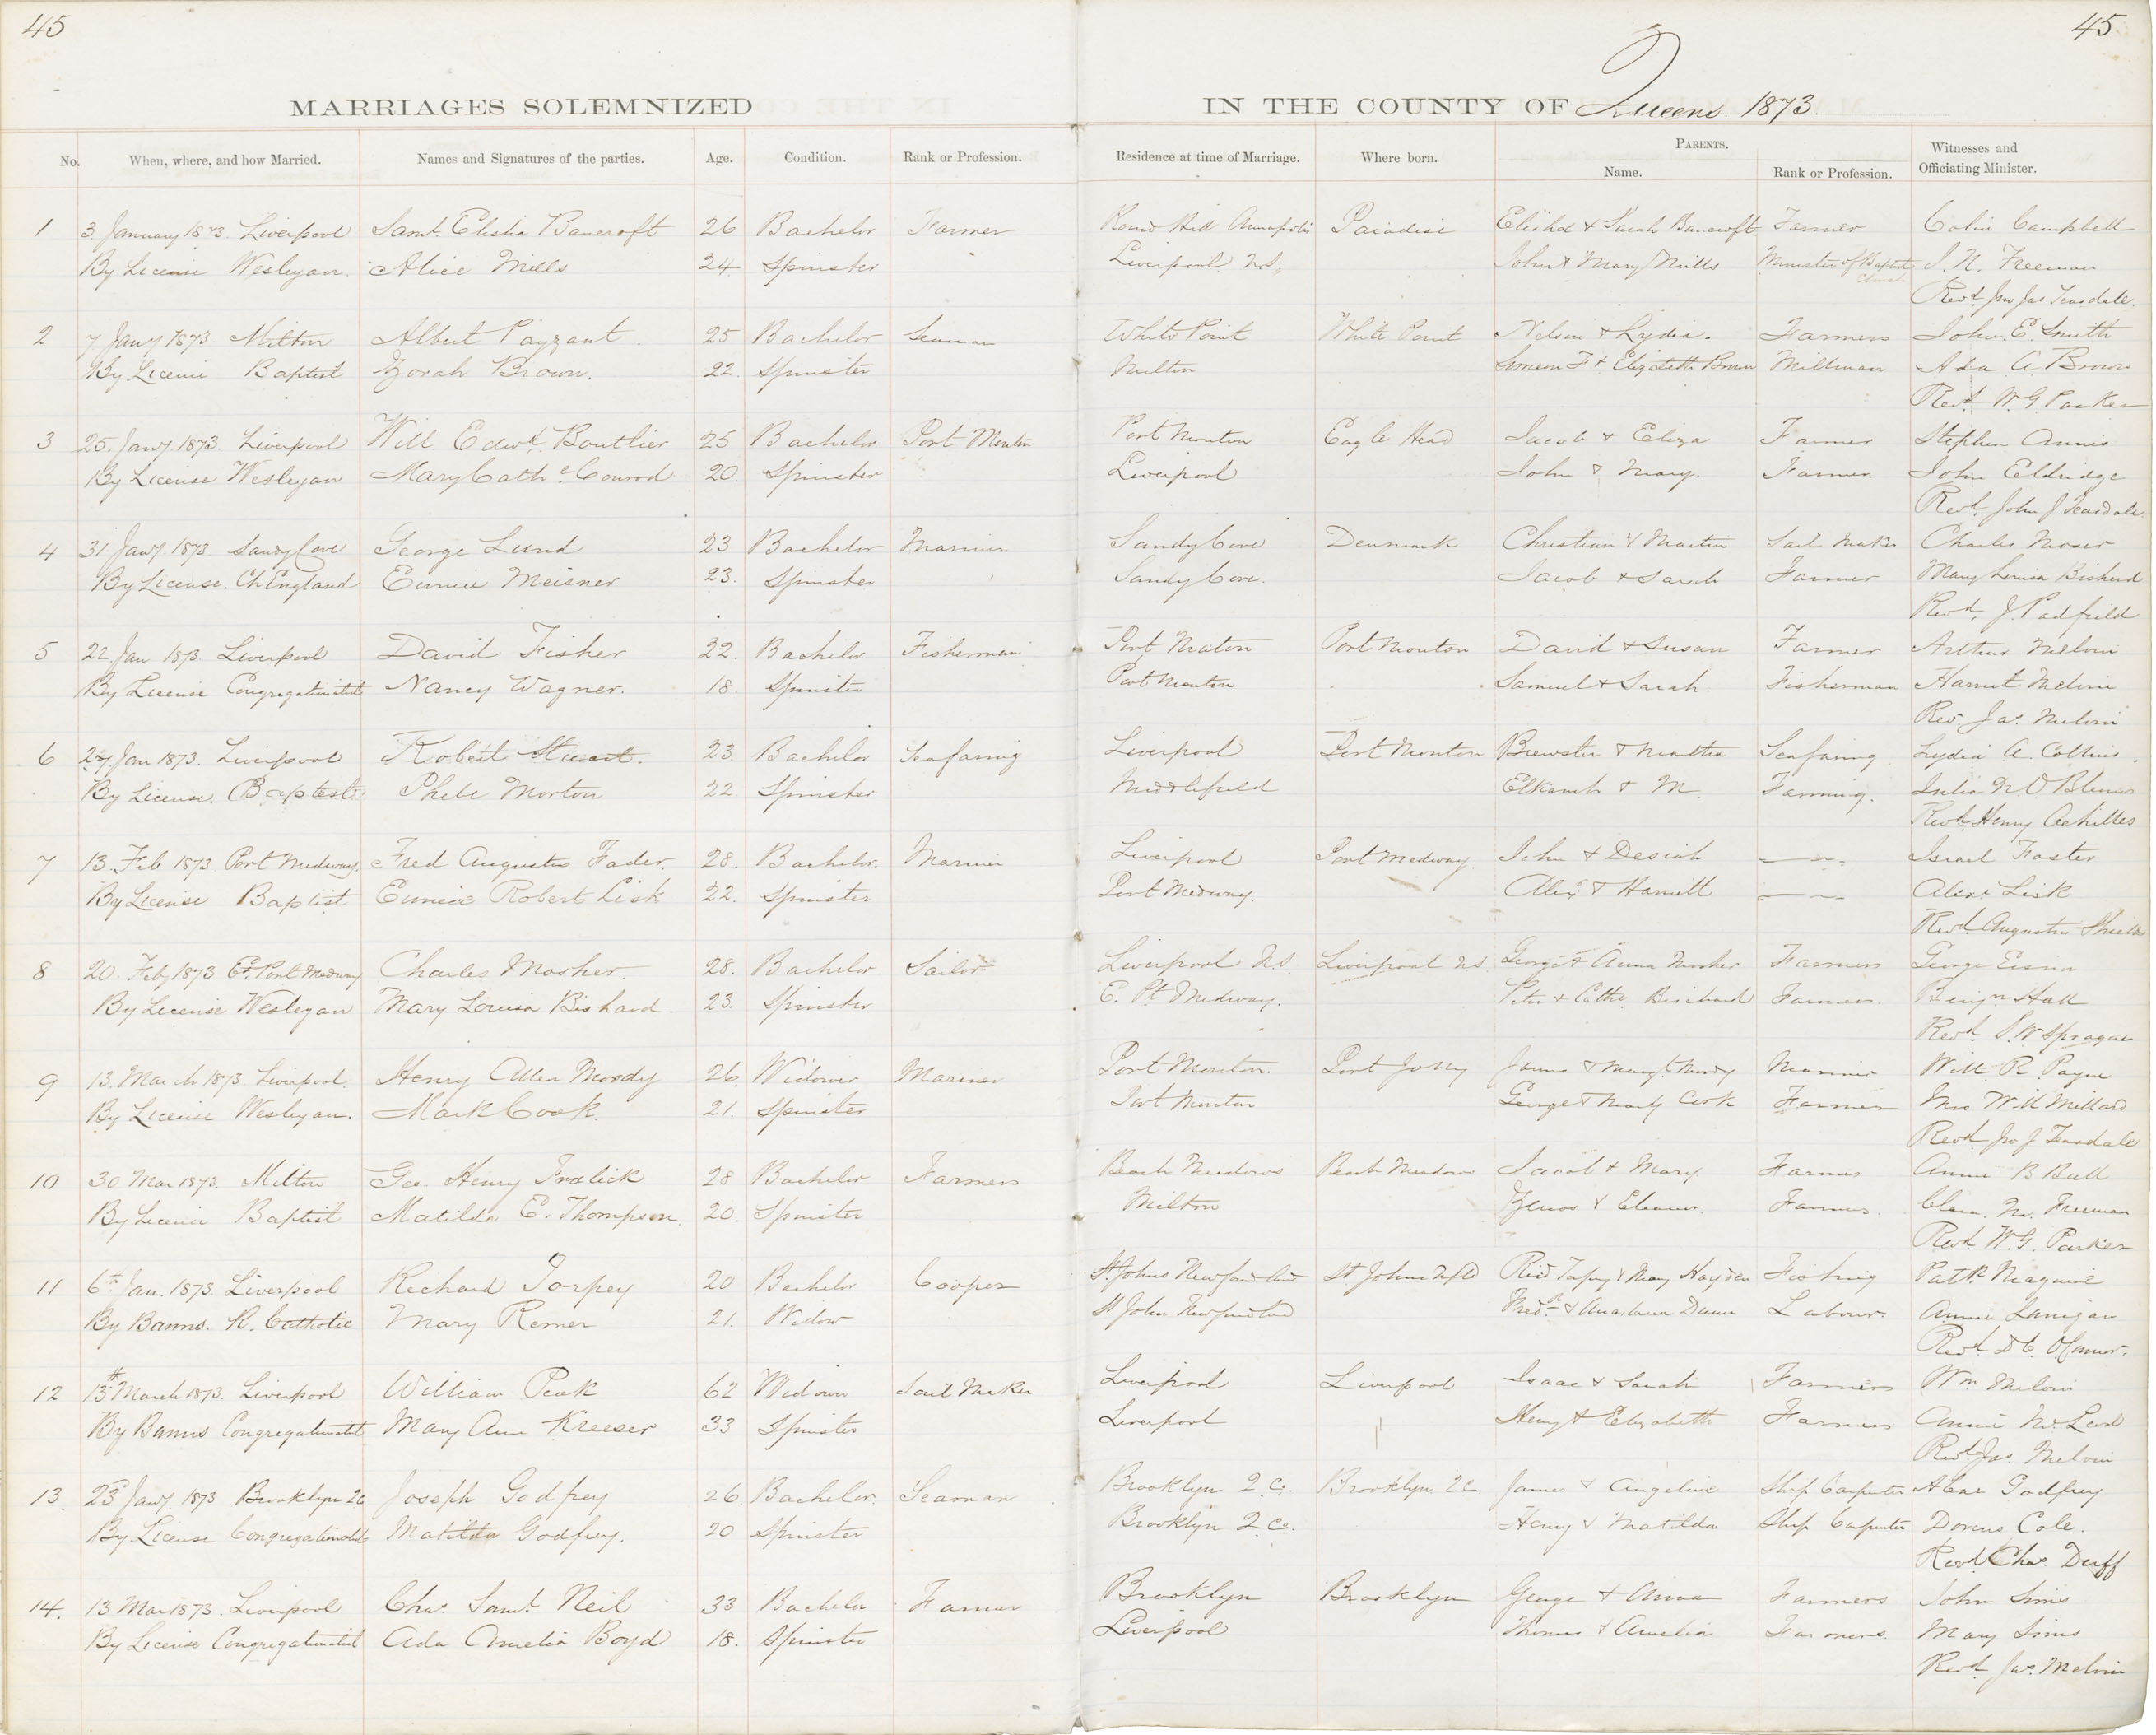 45
45
MARRIAGES SOLEMNIZED IN THE COUNTY OF Queens 1873
No. When, where, and how Married. Names and Signatures of the parties. Age. Condition. Rank or Profession. Residence at time of Marriage. Where born. PARENTS. Name. Rank or Profession. Witnesses and Officiating Minister.
1 3 January 1873. Liverpool Saml. Elisha Bancroft 26 Bachelor Farmer Round Hill Annapolis Paradise Elisha & Sarah Bancroft Farmer Colin Campbell
By License Wesleyan. Alice Mills 24 Spinster Liverpool N.S. John & Mary Mills Minister of Baptist Church J. N. Freeman
Revd. Jno Jas Teasdale.
2 7 Jany 1873. Milton Albert Payzant. 25 Bachelor Seaman White Point White Point Nelson & Lydia. Farmers John. E. Smith
By License Baptist Zorah Brown. 22. Spinster Milton Simeon F & Elizabeth Brown Millman Ada A Brown
Revd. W. G. Parker
3 25. Jany. 1873. Liverpool Will. Edwd. Boutlier 25 Bachelor Port Mouton Port Mouton Eagle Head Jacob & Eliza Farmer Stephen Annis
By License Wesleyan Mary Cathe. Conrod 20. Spinster Liverpool John & Mary. Farmer. John Eldridge
Revd. John J Teasdale
4 31 Jany. 1873 Sandy Cove George Lund 23 Bachelor Mariner Sandy Cove Denmark Christian & Martin Sail Maker Charles Moser
By License. Ch England Eunice Meisner 23. Spinster Sandy Cove. Jacob & Sarah Farmer Mary Louisa
Revd. J. Padfield
5 22 Jan 1873. Liverpool David Fisher 22. Bachelor Fisherman Port Mouton Port Mouton David & Susan Farmer Arthur Melvin
By License Congregationalist Nancy Wagner. 18. Spinster Port Mouton Samuel & Sarah. Fisherman Harriet Melvin
Rev. Jas. Melvin
6 27 Jan 1873. Liverpool Robert Stuart. 23 Bachelor Seafaring Liverpool Port Mouton Brewster & Martha Seafaring Lydia A. Collins
By License. Baptist Phebe Morton 22 Spinster Middlefield & M. Farming. Julia N.
Revd. Henry Achilles
7 13. Feb 1873 Port Medway. Fred Augustus Fader. 28. Bachelor. Mariner Liverpool Port Medway John & Desiah Israel Foster
By License Baptist Eunice Robert Lisk 22. Spinster Port Medway. Alexr. & Harriett Alexr. Lisk
Revd. Augustus Shields
8 20. Feby 1873 Et. Port Medway Charles Mosher. 28. Bachelor Sailor Liverpool N.S. Liverpool N.S. George & Anna Mosher Farmers George Eisnor
By License Wesleyan Mary Louisa Bishard. 23. Spinster E. Pt. Medway. Peter & Cathe. Farmers. Benjn Hall
Revd. S. W Sprague
9 13. March 1873. Liverpool. Henry Allen Moody 26. Widower Mariner Port Mouton. Port Jolly James & Margt. Moody Mariner Will. R. Payne
By License Wesleyan. Mark Cook. 21. Spinster Port Mouton George & Mary Cook Farmer Mrs W. M Millard
Revd. Jno J Teasdale
10 30 Mar 1873. Milton Geo. Henry Frelick 28 Bachelor Farmers Beach Meadows Beach Meadows Jacob & Mary Farmer Annie B Bull
By License Baptist Matilda E. Thompson. 20. Spinster Milton Zenos & Eleanor. Farmers. Clara. M. Freeman
Revd. W. G. Parker
11 6th Jan. 1873. Liverpool Richard Torpey 20 Bachelor Cooper St. Johns Newfoundland St Johns Nfld Ricd. Torpey & Mary Hayden Fishing Patk Maguire
By Banns. R. Catholic Mary Remer 21. Widow St John Newfoundland Fredk & Anastasia Dunn Labour. Annie Lanigan
Revd. D C. O'Connor.
12 13th March 1873. Liverpool William Peak 62 Widower Sail Maker Liverpool Liverpool Isaac & Sarah Farmers Wm Melvin
By Banns Congregationalist Mary Ann Kreeser 33 Spinster Liverpool Henry & Elizabeth Farmers Annie McLeod
Revd Jas. Melvin
13. 23d Jany. 1873 Brooklyn 2C Joseph Godfrey 26. Bachelor. Seaman Brooklyn Q. Co. Brooklyn 2C. James & Angeline Ship Carpenter Godfrey
By License Congregationalist Matilda Godfrey. 20 Spinster Brooklyn Q. Co. Henry & Matilda Ship Carpenter Dorcus Cole.
Revd. Chas. Duff
14. 13 Mar 1873. Liverpool Chas. Saml. Neil 33 Bachelor Farmer Brooklyn Brooklyn George & Anna Farmers John Sims
By License Congregationalist Ada Amelia Boyd 18. Spinster Liverpool Thomas & Amelia Farmers. Mary Sims
Revd. Jas. Melvin